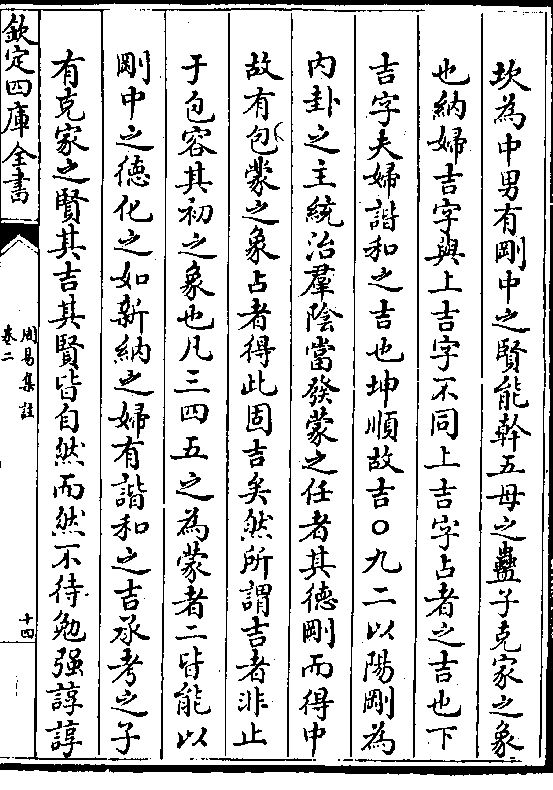 坎為中男有剛中之賢能幹五母之蠱子克家之象
也納婦吉字與上吉字不同上吉字占者之吉也下
吉字夫婦諧和之吉也坤順故吉○九二以陽剛為
内卦之主統治羣陰當發蒙之任者其德剛而得中
故有包蒙之象占者得此固吉矣然所謂吉者非止
于包容其初之象也凡三四五之為蒙者二皆能以
剛中之德化之如新納之婦有諧和之吉承考之子
有克家之賢其吉其賢皆自然而然不待勉强諄諄
欽定四庫全書
周易集註
卷二
十四